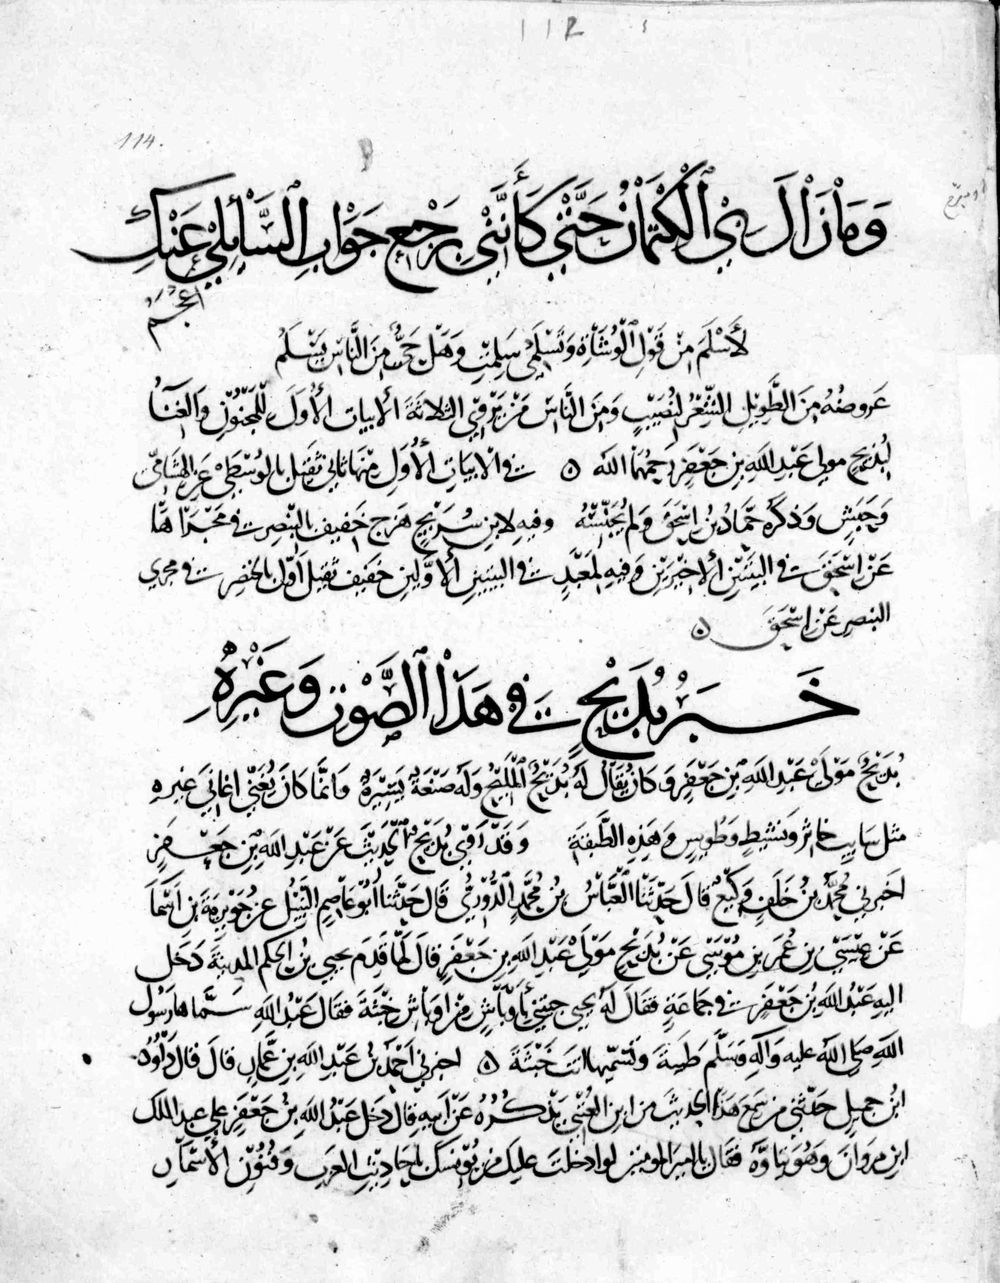 112
114.
وَمَازَالَ بِيَ ٱلْكِتْمَانُ حَتَّىٰ كَأَنَّنِي بِرَجْعِ جَوَابِ السَّائِلِي عَنْكِ
أَعْجَمُ
لأَسْلَمَ مِنْ قَوْلِ الْوُشَاةِ وَتَسْلَمِي سَلِمْتِ وَهَلْ حَيٌّ مِنَ النَّاسِ يَسْلَمُ
عَروضُه مِنَ الطَّوِيلِ الشِّعْرُ لِنُصَيْبٍ وَمِنَ النَّاسِ مَنْ يَرْوِي الثلاثَةَ الأبياتِ الأُوَلَ لِلْمَجْنُونِ وَالغِنَاءُ
لِبُدَيْحٍ مولى عَبْدِ اللهِ بنِ جَعْفَرٍ رَحِمَهُمَا اللهُ ٥ في الأبيَاتِ الأُوَلِ مِنْهَا ثاني ثَقِيلٍ بِالوُسْطَى عَنِ الهِشَامِيِّ
وَحَبَشٍ وَذَكَرَهُ حَمَّادُ بنُ إِسْحَقَ وَلَمْ يُجَنِّسْهُ وفيه لابنِ سُرَيْجٍ هَزَجٌ خَفِيفٌ بالبِنْصِرِ في مَجْرَاهَا
عَنْ إِسْحَقَ في البَيْتَيْنِ الأَخِيرَيْنِ وَفِيهِ لِمَعْبَدٍ في البيتينِ الأوَّلَيْنِ خَفِيفُ ثَقِيلٍ أَوَّلُ بالخِنْصِرِ في مجرى
البِنْصِرِ عَنْ إِسْحَقَ ٥
خَبَرُ بُدَيْحٍ فِي هَذَا الصَّوْتِ وَغَيْرِهِ
بُدَيْحٌ مَوْلَى عَبْدِ اللهِ بْنِ جَعْفَرٍ وكَانَ يُقَالُ لَهُ بُدَيْحٌ المَلِيحُ وَلَهُ صَنْعَةٌ يَسِيرَةٌ وَإِنَّمَا كَانَ يُغَنِّي أغَانِيَ غيرِهِ
مثلَ سَائِبِ خاثِرٍ وَنَشِيطٍ وَطُوَيْسٍ وَهَذِهِ الطَّبَقَةِ وَقَدْ رَوَى بُدَيْحٌ الْحَدِيثَ عَنْ عَبْدِ اللهِ بْنِ جَعْفَرٍ
اخبرني مُحَمَّدُ بنُ خَلَفٍ وَكِيعٌ قالَ حَدَّثَنَا الْعَبَّاسُ بنُ مُحَمَّدٍ الدُّورِيُّ قَالَ حَدَّثَنَا أَبُو عَاصِمٍ النَّبِيلُ عن جُوَيْرِيَةَ بنِ أَسْمَاءَ
عَنْ عِيسَى بنِ عُمَرَ بنِ مُوسَى عَنْ بُدَيْحٍ مَوْلَى عَبْدِ اللهِ بن جَعْفَرٍ قالَ لَمَّا قَدِمَ يحيى بنُ الحكم المدينَةَ دَخَلَ
اليهِ عَبْدُ اللهِ بنُ جَعْفَرٍ في جماعَةٍ فقالَ لَهُ يحيى جِئْتَنِي بِأَوْبَاشٍ مِنْ أَوْبَاشِ خَبْثَةَ فقالَ عَبْدُ اللهِ سَمَّاهَا رَسُولُ
اللهِ صَلَّى اللهُ عليهِ وَآلِهِ وَسَلَّمَ طَيْبَةَ وَتُسَمِّيهَا انتَ خَبْثَةَ ٥ اخبرني أَحْمَدُ بنُ عَبْدِ اللهِ بنِ عَمَّارٍ قالَ قالَ دَاوُدُ
ابنُ جميلٍ حَدَّثَنِي مَن سَمِعَ هَذَا الحديثَ من ابنِ العُتْبِيِّ يَذْكُرُهُ عَنْ أَبِيهِ قالَ دَخَلَ عَبْدُ اللهِ بنُ جَعْفَرٍ على عبدِ الملك
ابنِ مروانَ وَهُوَ يَتَأَوَّهُ فقالَ يا امير المومنين لو ادخلتَ عليكَ من يُؤْنِسُكَ بأحاديثِ العربِ وَفُنُونِ الأَسْمَارِ